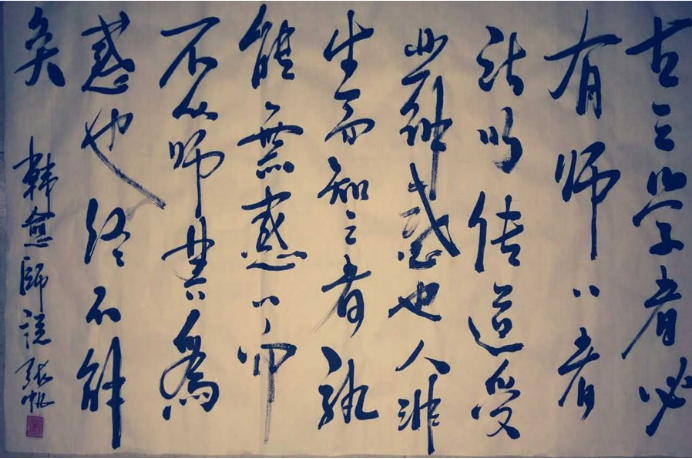 古之学者必
有师〻者
所以传道受
业解惑也人非
生而知之者孰
能無惑〻而
不从师其為
惑也终不解
矣
韓愈師说 张帆